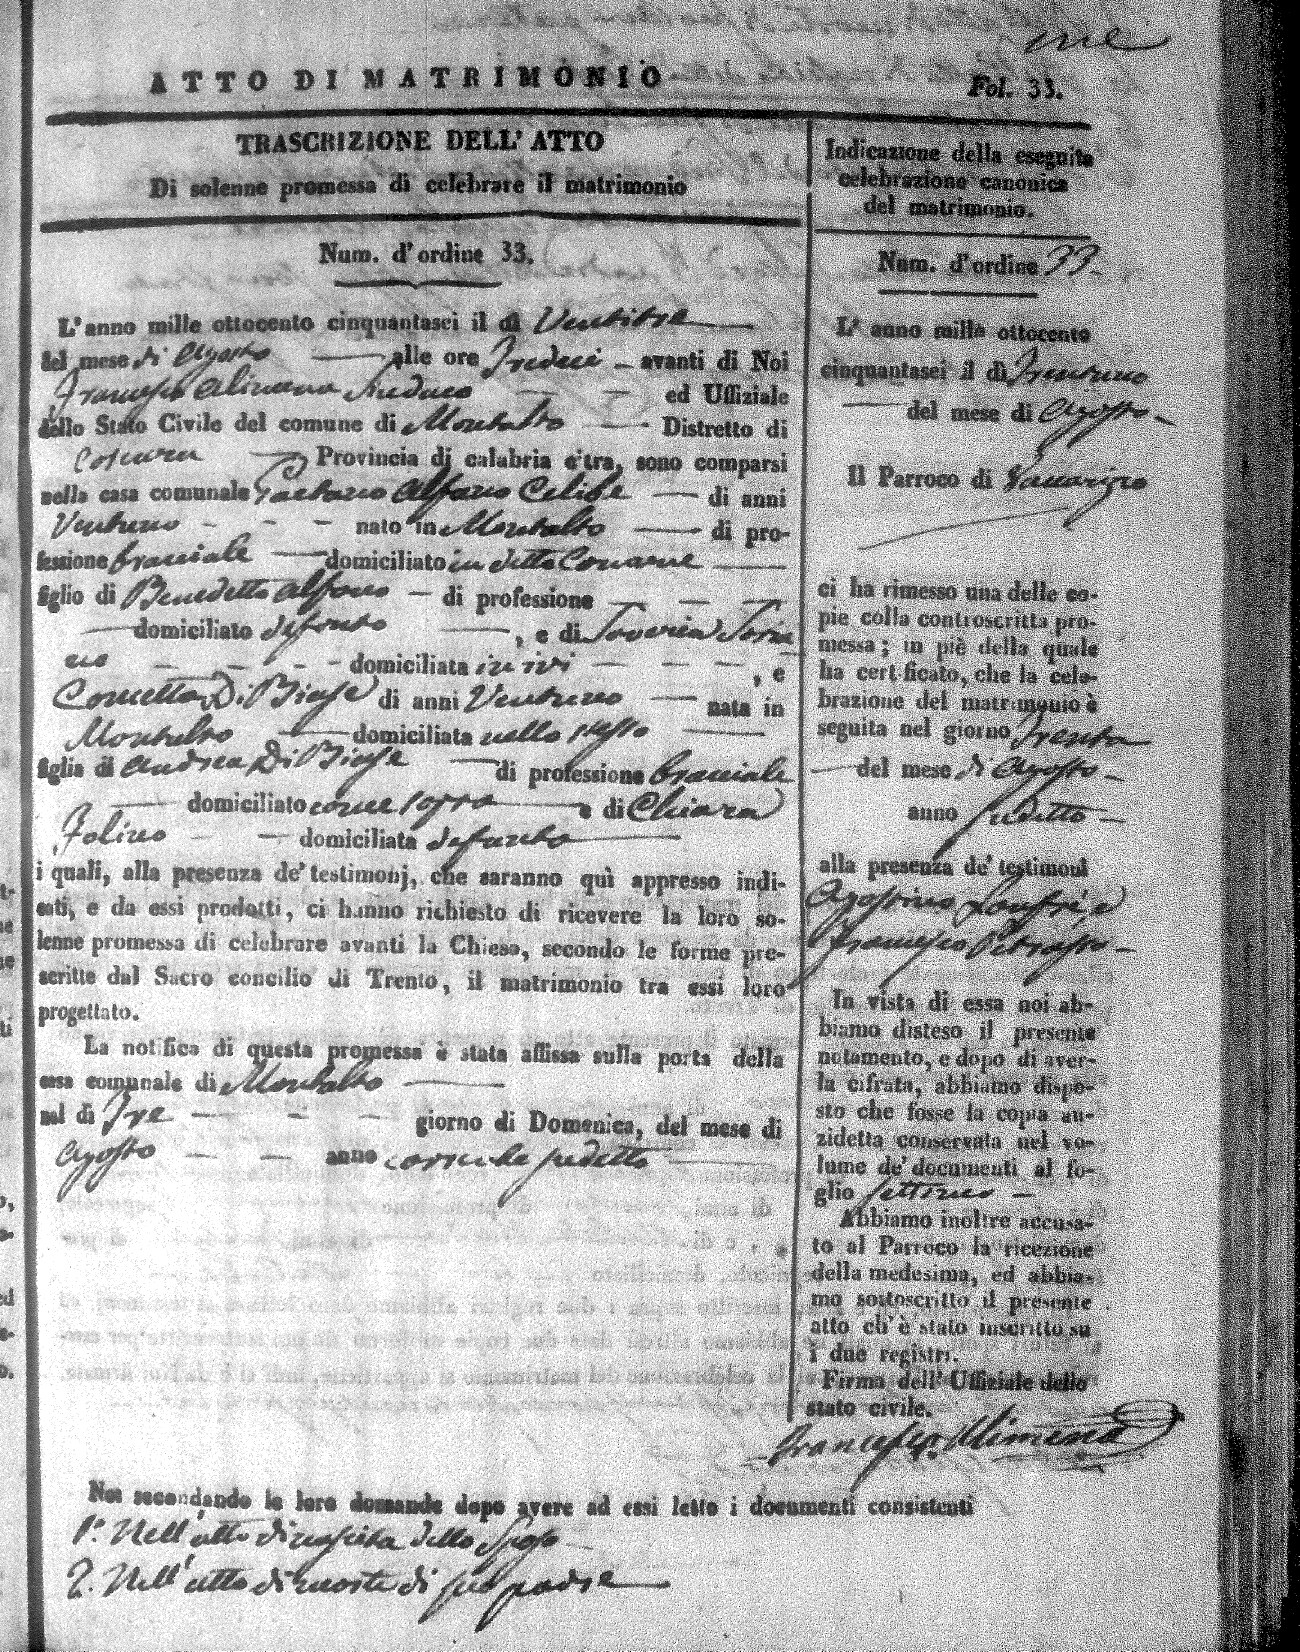 me
ATTO DI MATRIMONIO
Fol. 33.
TRASCRIZIONE DELL' ATTO
Di solenne promessa di celebrare il matrimonio
Num. d'ordine 33.
L'anno mille ottocento cinquantasei il dì Ventitre
del mese di Agosto alle ore Tredici avanti di Noi
Francesco Alimena Sindaco ed Uffiziale
dello Stato Civile del comune di Montalto Distretto di
Cosenza Provincia di calabria citra, sono comparsi
nella casa comunale Gaetano Alfano Celibe di anni
Ventuno nato in Montalto di pro-
fessione bracciale domiciliato in detto Comune
figlio di Benedetto Alfano di professione
domiciliato defonto , e di Saveria
domiciliata in ivi , e
Concetta Di Biase di anni Ventuno nata in
Montalto domiciliata nello stesso
figlia di Andrea Di Biase di professione bracciale
domiciliato come sopra e di Chiara
Folino domiciliata defunta
i quali, alla presenza de' testimonj, che saranno quì appresso indi-
cati, e da essi prodotti, ci hanno richiesto di ricevere la loro so-
lenne promessa di celebrare avanti la Chiesa, secondo le forme pre-
scritte dal Sacro concilio di Trento, il matrimonio tra essi loro
progettato.
La notifica di questa promessa è stata affissa sulla porta della
casa comunale di Montalto
nel dì Tre giorno di Domenica, del mese di
Agosto anno corrente sudetto
Indicazione della eseguita
celebrazione canonica
del matrimonio.
Num. d'ordine 33.
L' anno mille ottocento
cinquantasei il dì Trentuno
del mese di Agosto
Il Parroco di Vaccarizzo
ci ha rimesso una delle co-
pie colla controscritta pro-
messa; in piè della quale
ha certificato, che la cele-
brazione del matrimonio è
seguita nel giorno Trenta
del mese di Agosto
anno sudetto
alla presenza de' testimoni
Agostino e
Francesco
In vista di essa noi ab-
biamo disteso il presente
notamento, e dopo di aver-
la cifrata, abbiamo dispo-
sto che fosse la copia an-
zidetta conservata nel vo-
lume de' documenti al fo-
glio settimo
Abbiamo inoltre accusa-
to al Parroco la ricezione
della medesima, ed abbia-
mo sottoscritto il presente
atto ch' è stato inscritto su
i due registri.
Firma dell' Uffiziale dello
stato civile.
Francesco Alimena
Noi secondando le loro domande dopo avere ad essi letto i documenti consistenti
1.° Nell' atto di nascita dello Sposo
2. Nell' atto di morte di suo padre